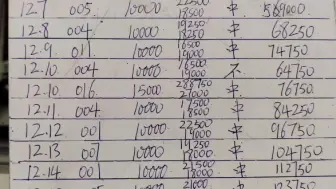 12.7 005. 10000 22500 18500 中 569000
12.8 004 10000 19250 18250 中 68250
12.9 011 10000 16500 9000 中 74750
12.10 004 10000 16500 19000 不 64750
12.10 016 15000 21000 中 76750
12.11 004 10000 17500 18500 中 84250
12.12 001 10000 22500 中 96750
12.13 007 10000 19250 18000 中 104750
12.14 001 10000 21500 18000 中 112750
21000